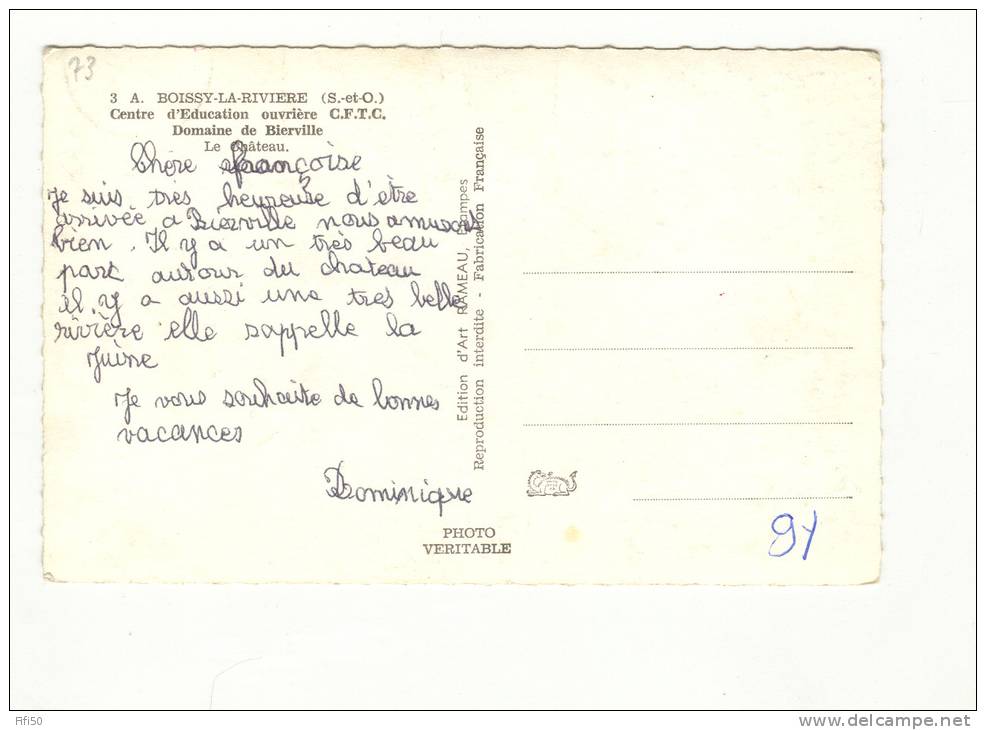 73
3 A. BOISSY-LA-RIVIERE (S.-et-O.)
Centre d'Education ouvrière C.F.T.C.
Domaine de Bierville
Le Château.
Chère françoise
Je suis très heureuse d'être
arrivée a Bierville nous amusons
bien. Il y a un très beau
parc autour du chateau
il y a aussi une tres belle
rivière elle sappelle la
Juine
Je vous souhaite de bonnes
vacances
Dominique
Edition d'Art RAMEAU, Etampes
Reproduction interdite - Fabrication Française
PHOTO
VERITABLE
91
Rfi50
www.delcampe.net